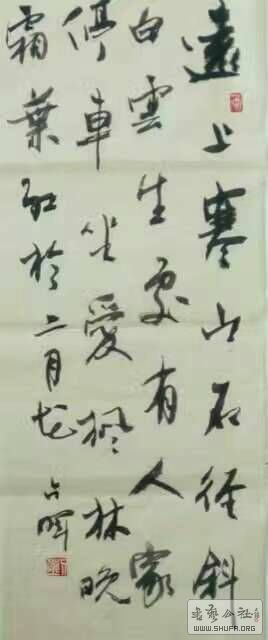 遠上寒山石径斜
白雲生處有人家
停車坐愛楓林晚
霜葉紅於二月花
書藝公社
WWW.SHUFA.ORG